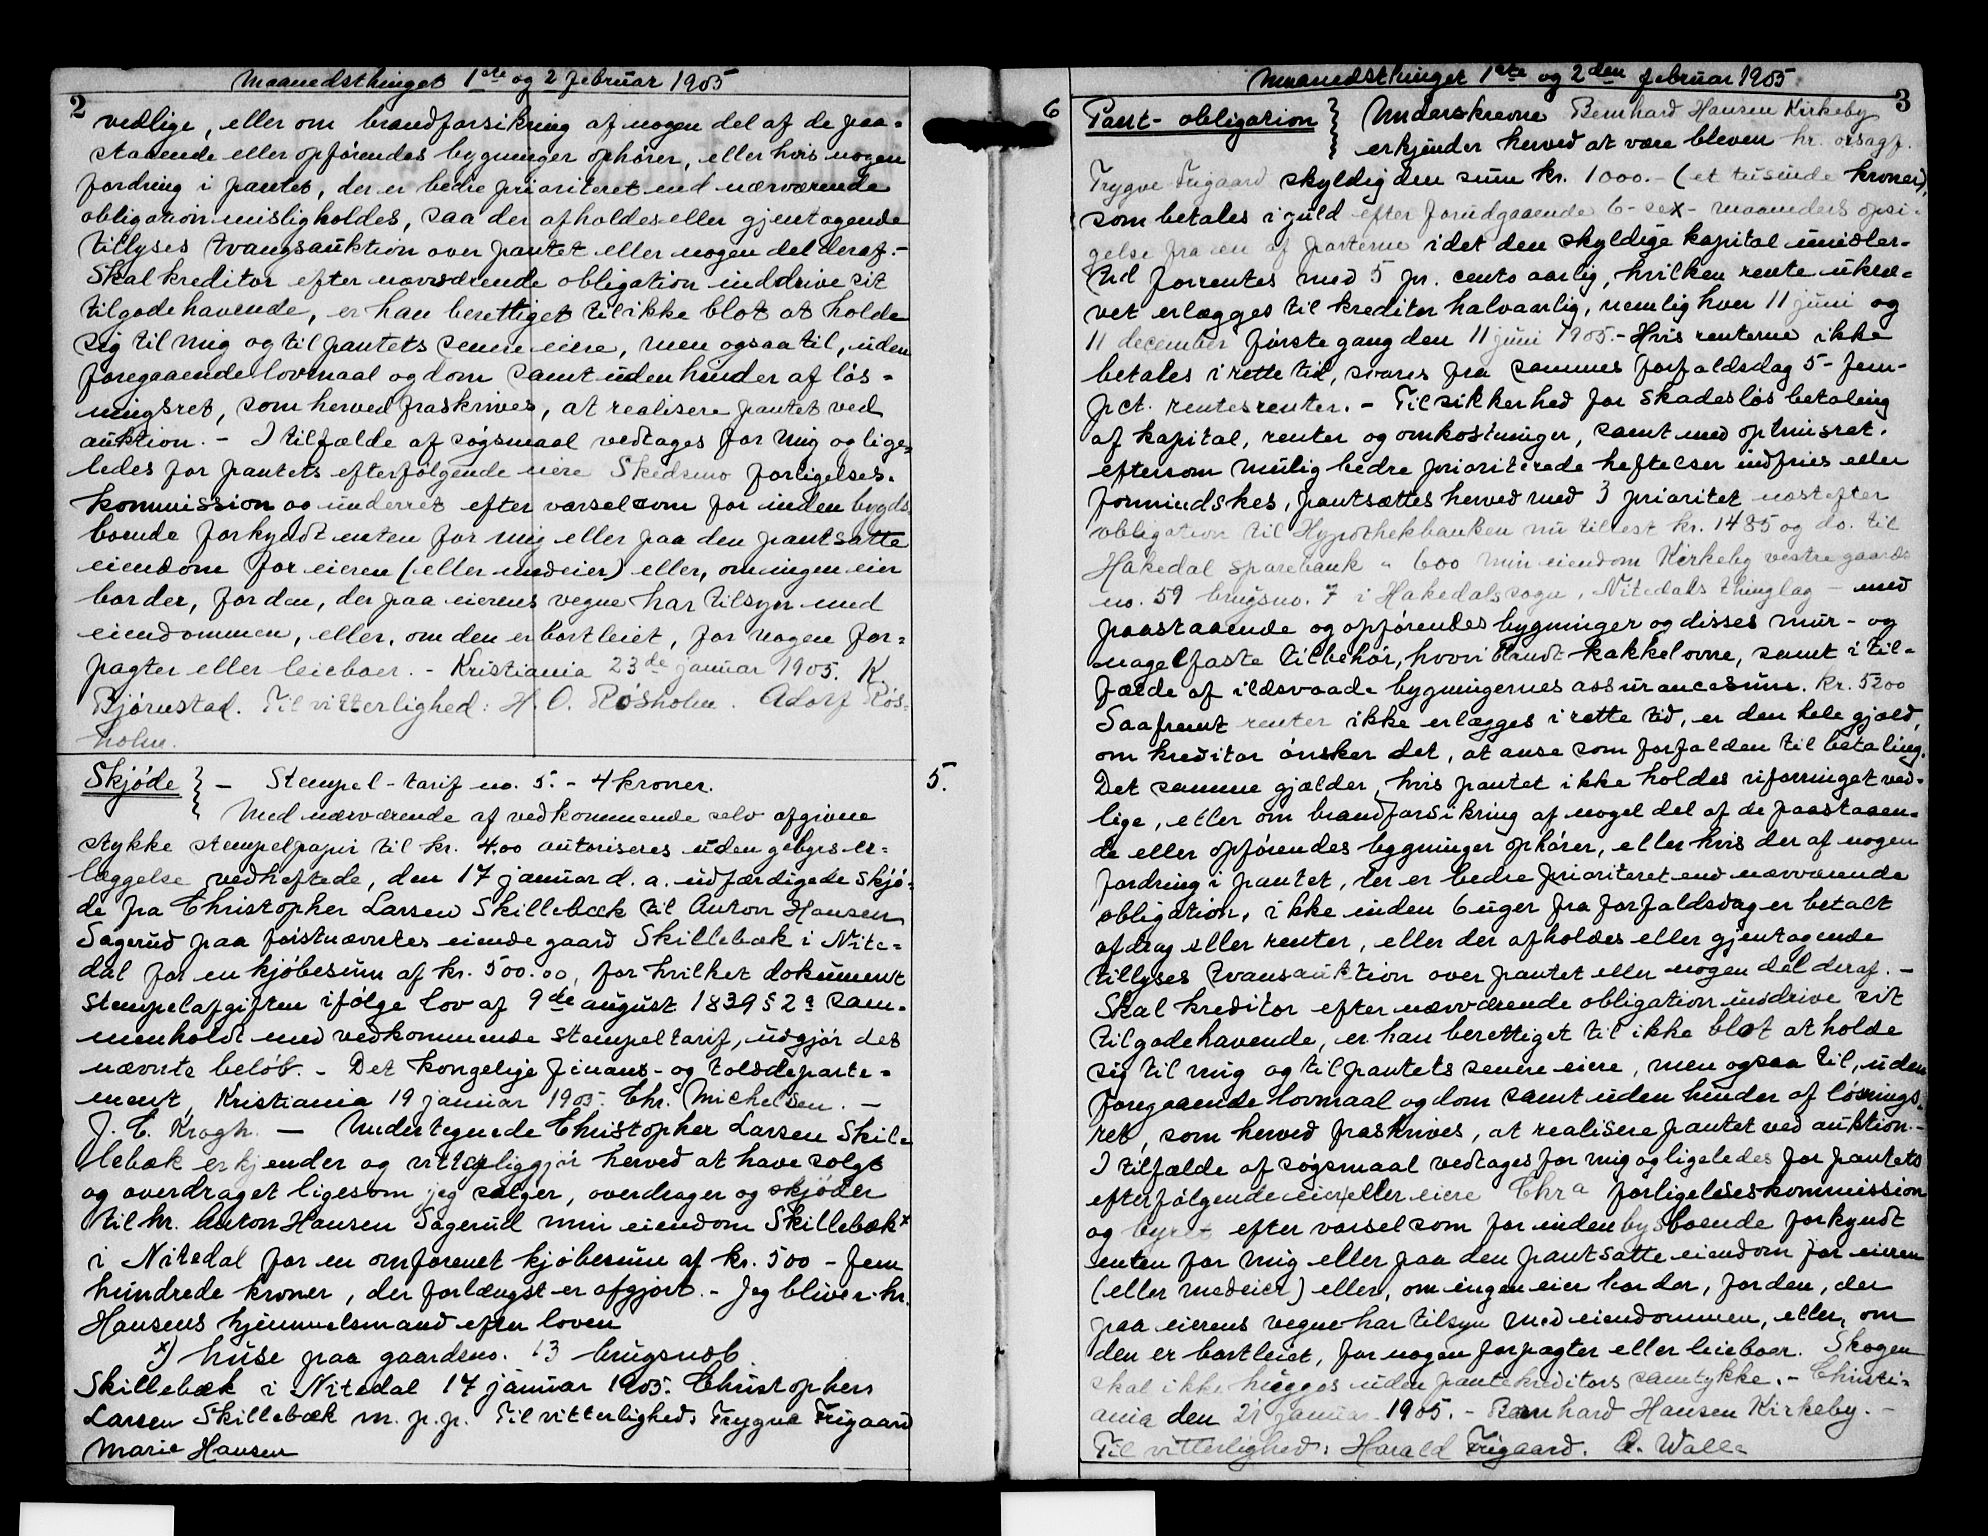 Maanedsthinget 1ste og 2 februar 1905
2
vedlige, eller om brandforsikring af nogen del af de paa-
staaende eller opførendes bygninger ophører, eller hvis nogen
fordring i pantet, der er bedre prioriteret end nærværende
obligation misligholdes, saa der afholdes eller gjentagende
tillyses tvangsauktion over pantet eller nogen del deraf.-
Skal kreditor efter nærværende obligation inddrive sit
tilgodehavende, er han berettiget til ikke blot at holde
sig til mig og til pantets senere eiere, men ogsaa til, uden
foregaaende lovmaal og dom samt uden hinder af løs-
ningsret, som herved fraskrives, at realisere pantet ved
auktion. - I tilfælde af søgsmaal vedtages for mig og lige-
ledes for pantets efterfølgende eiere Skedsmo forligelses-
kommission og underret efter varsel som for inden bygds
boende forkyndt enten for mig eller paa den pantsatte
eiendom for eieren (eller medeier) eller, om ingen eier
bor der, for den, der paa eierens vegne har tilsyn med
eiendommen, eller, om den er bortleiet, for nogen for-
pagter eller leieboer. - Kristiania 23de januar 1905. K.
Bjørnstad. Til vitterlighed: H. O. Røsholm. Adolf Røs-
holm.
Skjøde } - Stempel-tarif no. 5. - 4 kroner. 5.
Med nærværende af vedkommende selv afgivne
stykke stempelpapir til kr. 4.00 autoriseres uden gebyrs er-
læggelse vedheftede, den 17 januar d. a. udfærdigede skjø-
de fra Christopher Larsen Skillebæk til Anton Hansen
Sagerud paa førstnævntes eiende gaard Skillebæk i Nite-
dal for en kjøbesum af kr. 500.00, for hvilket dokument
stempelafgiften ifølge lov af 9de august 1839 § 2 a sam-
menholdt med vedkommende stempeltarif, udgjør det
nævnte beløb. - Det kongelige finans- og tolddeparte-
ment, Kristiania 19 januar 1905. Chr. Michelsen. -
J. E. Krogh. - Undertegnede Christopher Larsen Skil-
lebæk erkjender og vitterliggjør herved at have solgt
og overdraget ligesom jeg sælger, overdrager og skjøder
til hr. Anton Hansen Sagerud min eiendom Skillebæk x
i Nitedal for en omforenet kjøbesum af kr. 500 - fem
hundrede kroner, der forlængst er afgjort. - Jeg bliver hr.
Hansens hjemmelsmand efter loven
x) huse paa gaardsno. 13 brugsno 6
Skillebæk i Nitedal 17 januar 1905. Christophers
Larsen Skillebæk m. p. p. Til vitterlighed: Trygve Frigaard
Marie Hansen
Maanedsthinget 1ste og 2den februar 1905
3
6 Pant-obligation } Underskrevne Bernhard Hansen Kirkeby
erkjender herved at være bleven hr. orsagf.
Trygve Frigaard skyldig den sum kr. 1000.- (et tusinde kroner),
som betales i guld efter forudgaaende 6-sex- maaneders opsi-
gelse fra en af parterne idet den skyldige kapital imidler-
tid forrentes med 5 pr. cento aarlig, hvilken rente ukræ-
vet erlægges til kreditor halvaarlig, nemlig hver 11 juni og
11 december første gang den 11 juni 1905.- Hvis renterne ikke
betales i rette tid, svares fra sammes forfaldsdag 5-fem-
pct. rentesrenter. - Til sikkerhed for skadesløs betaling
af kapital, renter og omkostninger, samt med optrinsret.
eftersom mulig bedre prioriterede heftelser indfries eller
formindskes, pantsættes herved med 3 prioritet næst efter
obligation til Hypothekbanken nu tilrest kr. 1485 og do. til
Hakedal sparebank " 600 min eiendom Kirkeby vestre gaards
no. 59 brugsno. 7 i Hakedals sogn, Nitedals thinglag - med
paastaaende og opførendes bygninger og disses mur- og
nagelfaste tilbehør, hvoriblandt kakkelovne, samt i til-
fælde af ildsvaade bygningernes assurancesum. kr. 5300
Saafremt renter ikke erlægges i rette tid, er den hele gjæld,
om kreditor ønsker det, at anse som forfalden til betaling.
Det samme gjælder, hvis pantet ikke holdes uforringet ved-
lige, eller om brandforsikring af nogel del af de paastaaen-
de eller opførendes bygninger ophører, eller hvis der af nogen
fordring i pantet, der er bedre prioriteret end nærværende
obligation, ikke inden 6 uger fra forfaldsdag er betalt
afdrag eller renter, eller der afholdes eller gjentagende
tillyses tvansauktion over pantet eller nogen del deraf. -
Skal kreditor efter nærværende obligation inddrive sit
tilgodehavende, er han berettiget til ikke blot at holde
sig til mig og til pantets senere eiere, men ogsaa til, uden
foregaaende lovmaal og dom samt uden hinder af løsnings-
ret, som herved fraskrives, at realisere pantet ved auktion.-
I tilfælde af søgsmaal vedtages for mig og ligeledes for pantets
efterfølgende eier eller eiere Chra forligelseskommission
og byret efter varsel som for inden bys boende forkyndt
enten for mig eller paa den pantsatte eiendom for eieren
(eller medeier) eller, om ingen eier bor der, for den, der
paa eierens vegne har tilsyn med eiendommen, eller, om
den er bortleiet, for nogen forpagter eller leieboer. Skogen
skal ikke hugges uden pantekreditors samtykke. - Christi-
ania den 21 januar 1905. - Bernhard Hansen Kirkeby. -
Til vitterlighed: Harald Frigaard. O. Walle